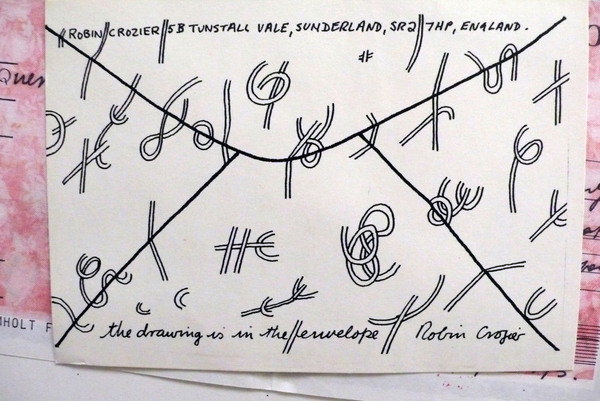 ROBIN CROZIER 5B TUNSTALL VALE, SUNDERLAND, SR2 7HP, ENGLAND.
Ques
MHOLT F
the drawing is in the envelope Robin Crozier